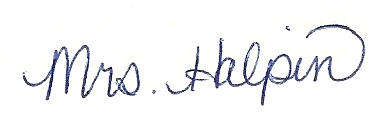 Mrs. Halpin